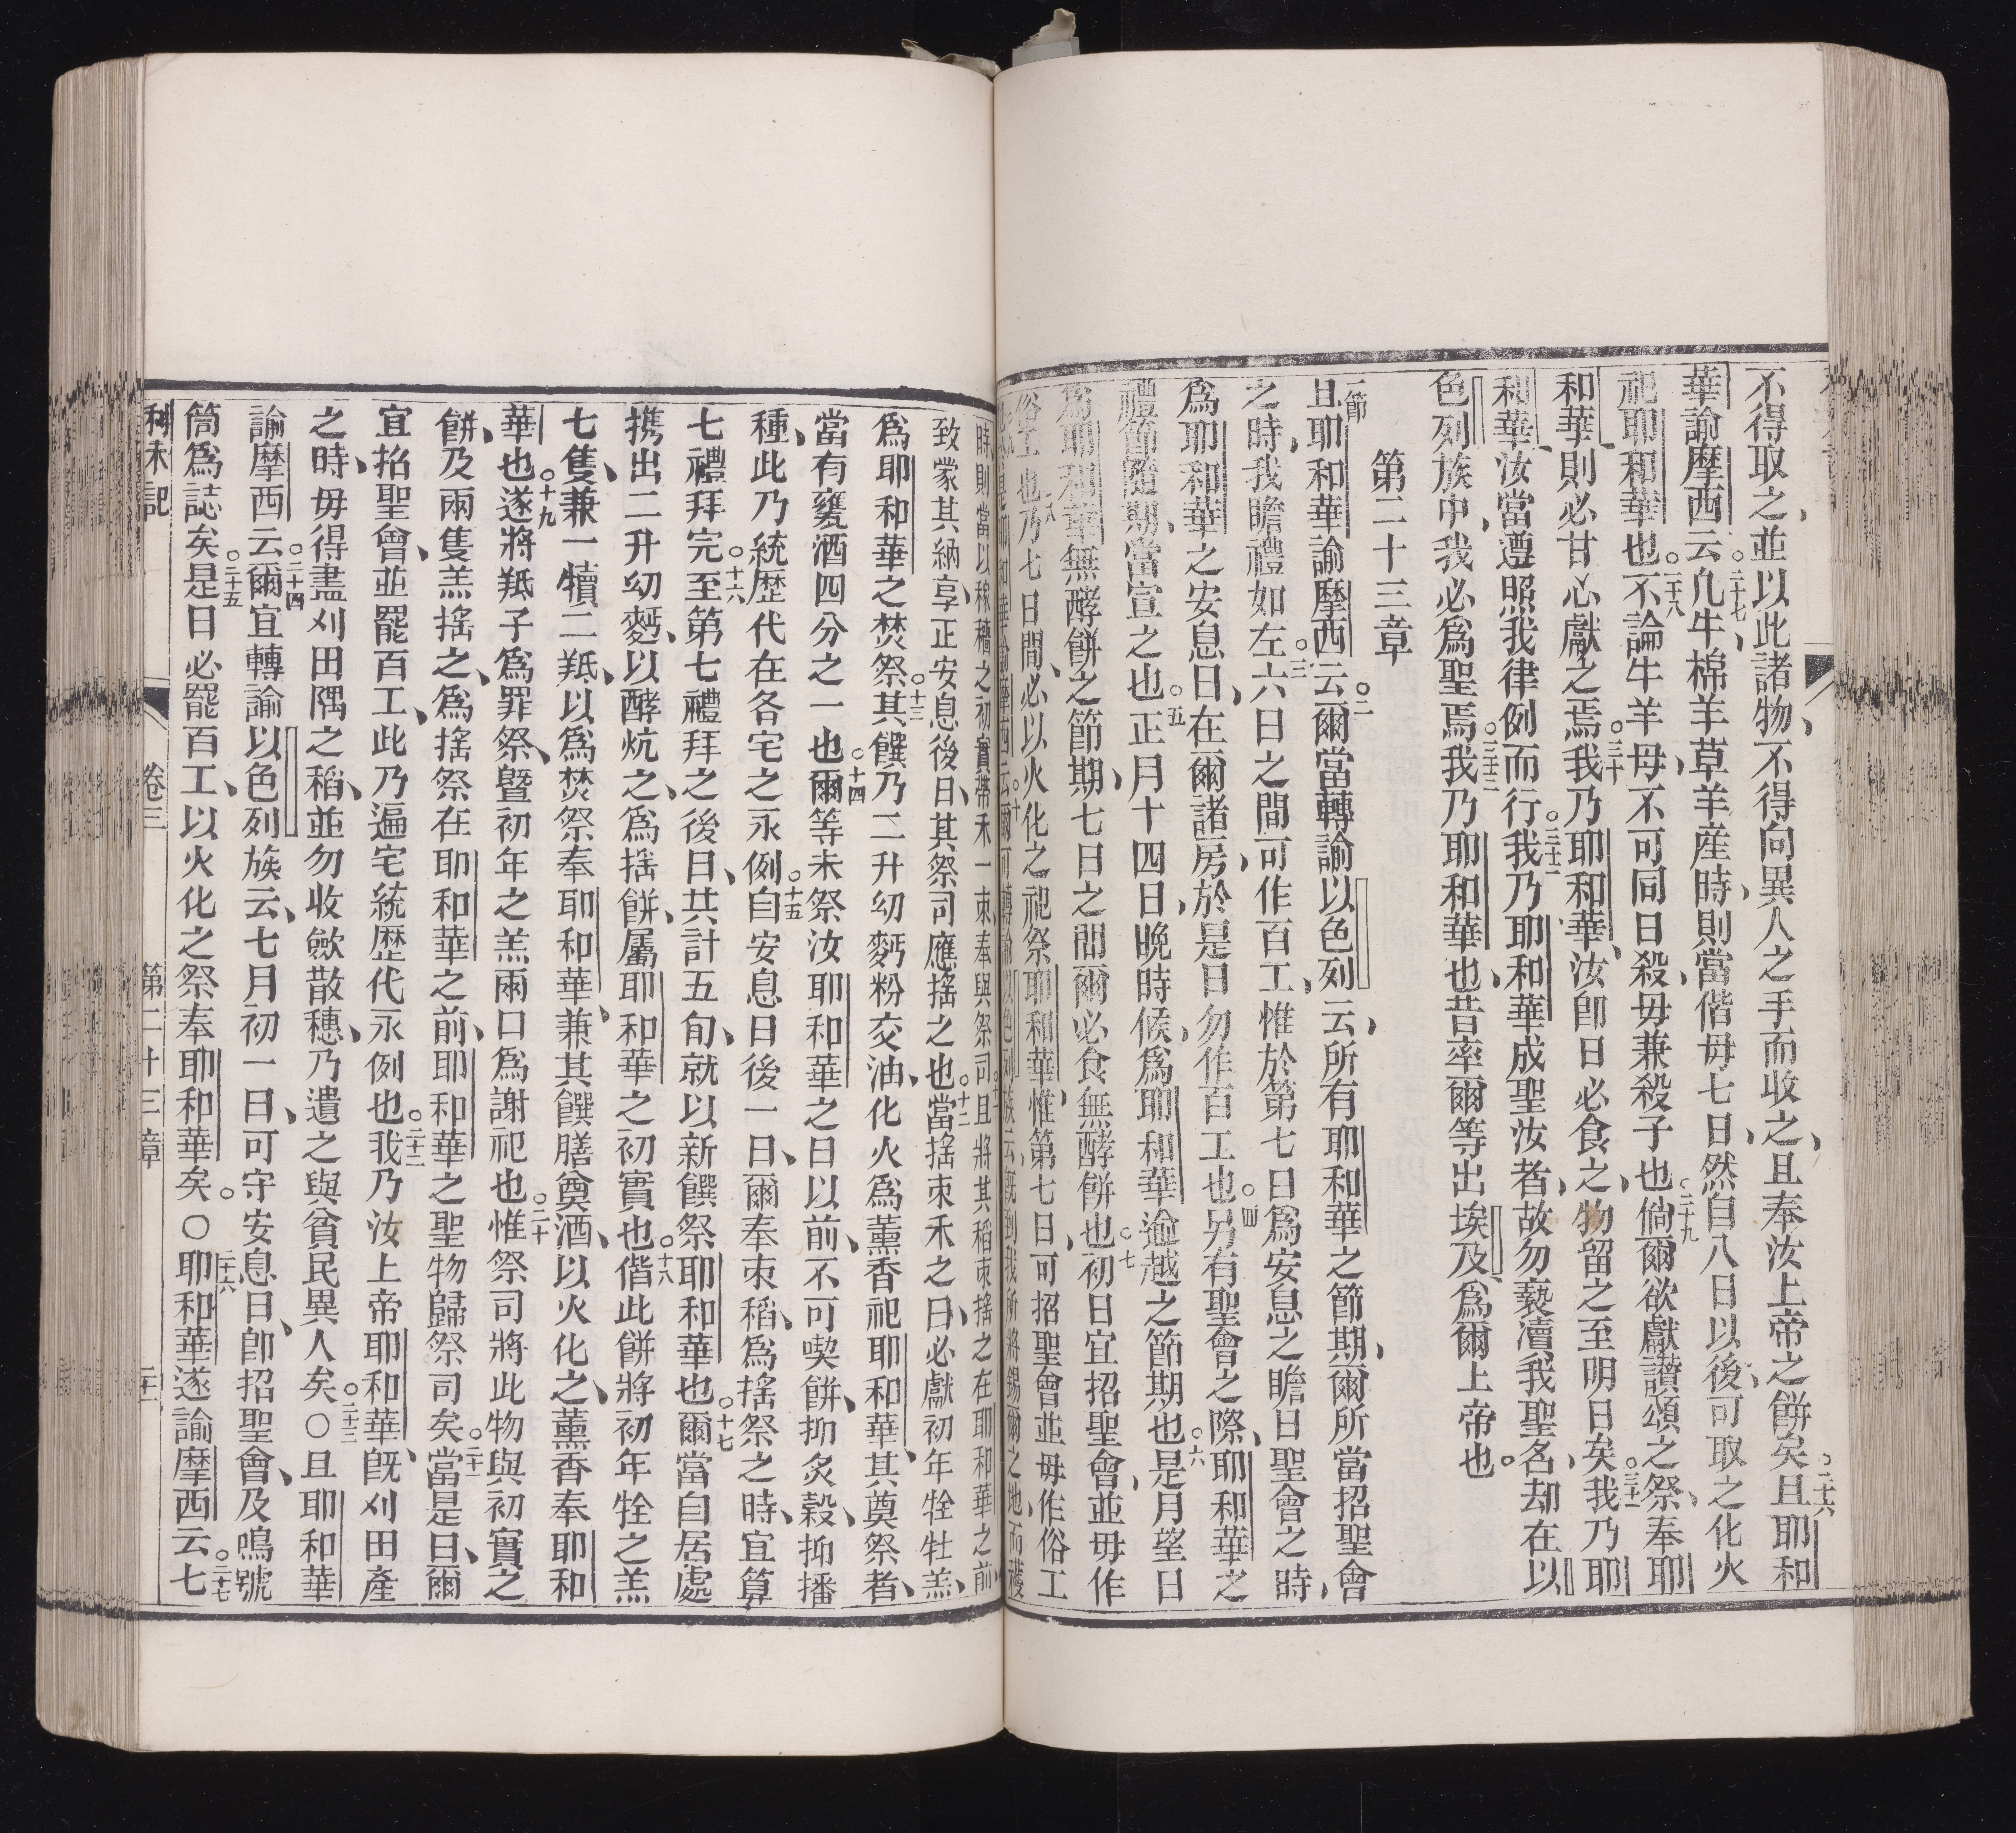 不得取之、並以此諸物、不得向異人之手而收之、且奉汝上帝之餅矣。二十六且耶和
華諭摩西云。二十七凢牛棉羊草羊産時、則當偕母七日、然自八日以後、可取之化火
祀耶和華也。二十八不論牛羊、母不可同日殺、毋兼殺子也。二十九倘爾欲獻讚頌之祭、奉耶
和華、則必甘心獻之焉。三十我乃耶和華、汝卽日必食之、物留之至明日矣。三十一我乃耶
和華、汝當遵照我律例而行。三十二我乃耶和華成聖汝者、故勿褻瀆我聖名、却在以
色列族中、我必為聖焉。三十三我乃耶和華也、昔率爾等出埃及、為爾上帝也。
第二十三章
一節
且耶和華諭摩西云。二爾當轉諭以色列云、所有耶和華之節期、爾所當招聖會
之時、我瞻禮如左。三六日之間可作百工、惟於第七日為安息之瞻日聖會之時、
為耶和華之安息日、在爾諸房、於是日勿作百工也。四另有聖會之際、耶和華之
禮節隨期、當宣之也。五正月十四日晚時候、為耶和華逾越之節期也。六是月望日
為耶和華無酵餅之節期、七日之間爾必食無酵餅也。七初日宜招聖會、並毋作
俗工也。八乃七日間、必以火化之祀祭耶和華、惟第七日、可招聖會並毋作俗工
也。九是耶和華諭摩西云。十爾可轉諭以色列族云、旣到我所將錫爾之地、而穫
時則當以稼穡之初實、帶禾一束、奉與祭司。十一且將其稻束搖之在耶和華之前、
致蒙其納享、正安息後日、其祭司應搖之也。十二當搖束禾之日、必獻初年牷牡羔、
為耶和華之焚祭。十三其饌乃二升幼麪粉交油、化火為薰香祀耶和華、其奠祭者、
當有甕酒四分之一也。十四爾等未祭汝耶和華之日以前、不可喫餅、抑炙穀、抑播
種、此乃統歷代在各宅之永例。十五自安息日後一日、爾奉束稻、為搖祭之時、宜算
七禮拜完。十六至第七禮拜之後日、共計五旬、就以新饌祭耶和華也。十七爾當自居處
携出二升幼麪、以酵炕之、為搖餅、屬耶和華之初實也。十八偕此餅將初年牷之羔
七隻、兼一犢二羝、以為焚祭奉耶和華、兼其饌膳奠酒、以火化之、薰香奉耶和
華也。十九遂將羝子為罪祭、曁初年之羔兩口為謝祀也。二十惟祭司將此物與初實之
餅、及兩隻羔搖之、為搖祭在耶和華之前、耶和華之聖物歸祭司矣。二十一當是日、爾
宜招聖會、並罷百工、此乃遍宅統歷代永例也。二十二我乃汝上帝耶和華、旣刈田產
之時、毋得盡刈田隅之稻、並勿收斂散穗、乃遺之與貧民異人矣。二十三〇且耶和華
諭摩西云。二十四爾宜轉諭以色列族云、七月初一日、可守安息日、卽招聖會、及鳴號
筒為誌矣。二十五是日必罷百工、以火化之祭奉耶和華矣。〇二十六耶和華遂諭摩西云。二十七七
利未記 卷三 第二十三章 二十一